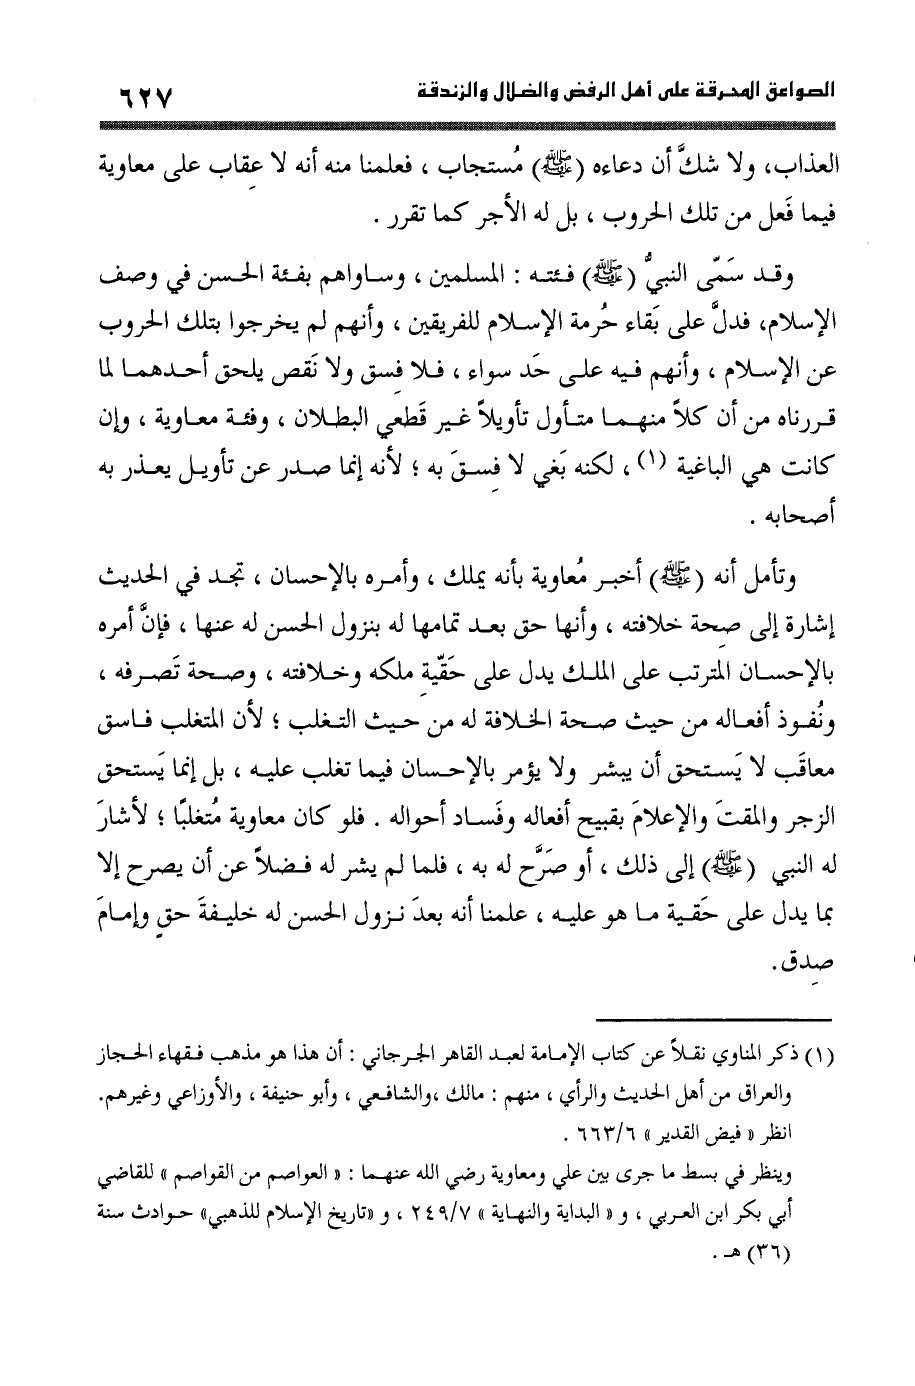 الصواعق المحرقة على أهل الرفض والضلال والزندقة
٦٢٧
العذاب، ولا شكَّ أن دعاءه (ﷺ) مُستجاب ، فعلمنا منه أنه لا عِقاب على معاوية
فيما فَعل من تلك الحروب ، بل له الأجر كما تقرر .
وقد سَمَّى النبيُّ (ﷺ) فئته : المسلمين ، وساواهم بفئة الحسن في وصف
الإسلام، فدلَّ على بَقاء حُرمة الإسلام للفريقين ، وأنهم لم يخرجوا بتلك الحروب
عن الإسلام ، وأنهم فيه على حَد سواء ، فلا فِسق ولا نَقص يلحق أحدهما لما
قررناه من أن كلاً منهما متأول تأويلاً غير قَطعي البطلان ، وفئة معاوية ، وإن
كانت هي الباغية (١) ، لكنه بَغي لا فِسقَ به ؛ لأنه إنما صدر عن تأويل يعذر به
أصحابه .
وتأمل أنه (ﷺ) أخبر مُعاوية بأنه يملك ، وأمره بالإحسان ، تجد في الحديث
إشارة إلى صِحة خلافته ، وأنها حق بعد تمامها له بنزول الحسن له عنها ، فإنَّ أمره
بالإحسان المترتب على الملك يدل على حَقّيةِ ملكه وخلافته ، وصحة تَصرفه ،
ونُفوذ أفعاله من حيث صحة الخلافة له من حيث التغلب ؛ لأن المتغلب فاسق
معاقَب لا يَستحق أن يبشر ولا يؤمر بالإحسان فيما تغلب عليه ، بل إنما يَستحق
الزجر والمقتَ والإعلامَ بقبيح أفعاله وفَساد أحواله . فلو كان معاوية مُتغلبًا ؛ لأشارَ
له النبي (ﷺ) إلى ذلك ، أو صَرَّح له به ، فلما لم يشر له فضلاً عن أن يصرح إلا
بما يدل على حَقية ما هو عليه ، علمنا أنه بعدَ نزول الحسن له خليفةَ حقٍ وإمامَ
صِدق.
(١) ذكر المناوي نقلاً عن كتاب الإمامة لعبد القاهر الجرجاني : أن هذا هو مذهب فقهاء الحجاز
والعراق من أهل الحديث والرأي ، منهم : مالك ،والشافعي ، وأبو حنيفة ، والأوزاعي وغيرهم.
انظر « فيض القدير » ٦/٦٦٣ .
وينظر في بسط ما جرى بين علي ومعاوية رضي الله عنهما : « العواصم من القواصم » للقاضي
أبي بكر ابن العربي ، و « البداية والنهاية » ٧/٢٤٩ ، و «تاريخ الإسلام للذهبي» حوادث سنة
(٣٦) هـ .